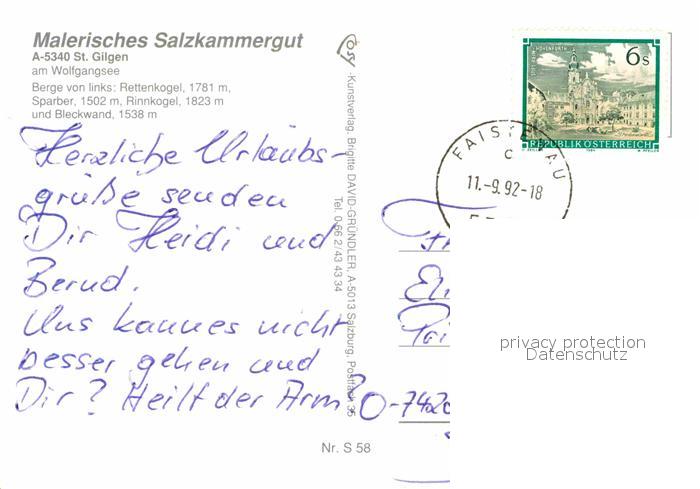 Malerisches Salzkammergut
A-5340 St. Gilgen
am Wolfgangsee
Berge von links: Rettenkogel, 1781 m,
Sparber, 1502 m, Rinnkogel, 1823 m
und Bleckwand, 1538 m
Herzliche Urlaubs-
grüße senden
Dir Heidi und
Bernd.
Uns kann es nicht
besser gehen und
Dir? Heilt der Arm?
Cosy -Kunstverlag, Brigitte DAVID-GRÜNDLER, A-5013 Salzburg, Postfach 35
Tel. 0 66 2/43 43 34
Nr. S 58
6s
REPUBLIK ÖSTERREICH
1984
11.-9.92-18
c
O-7420
privacy protection
Datenschutz